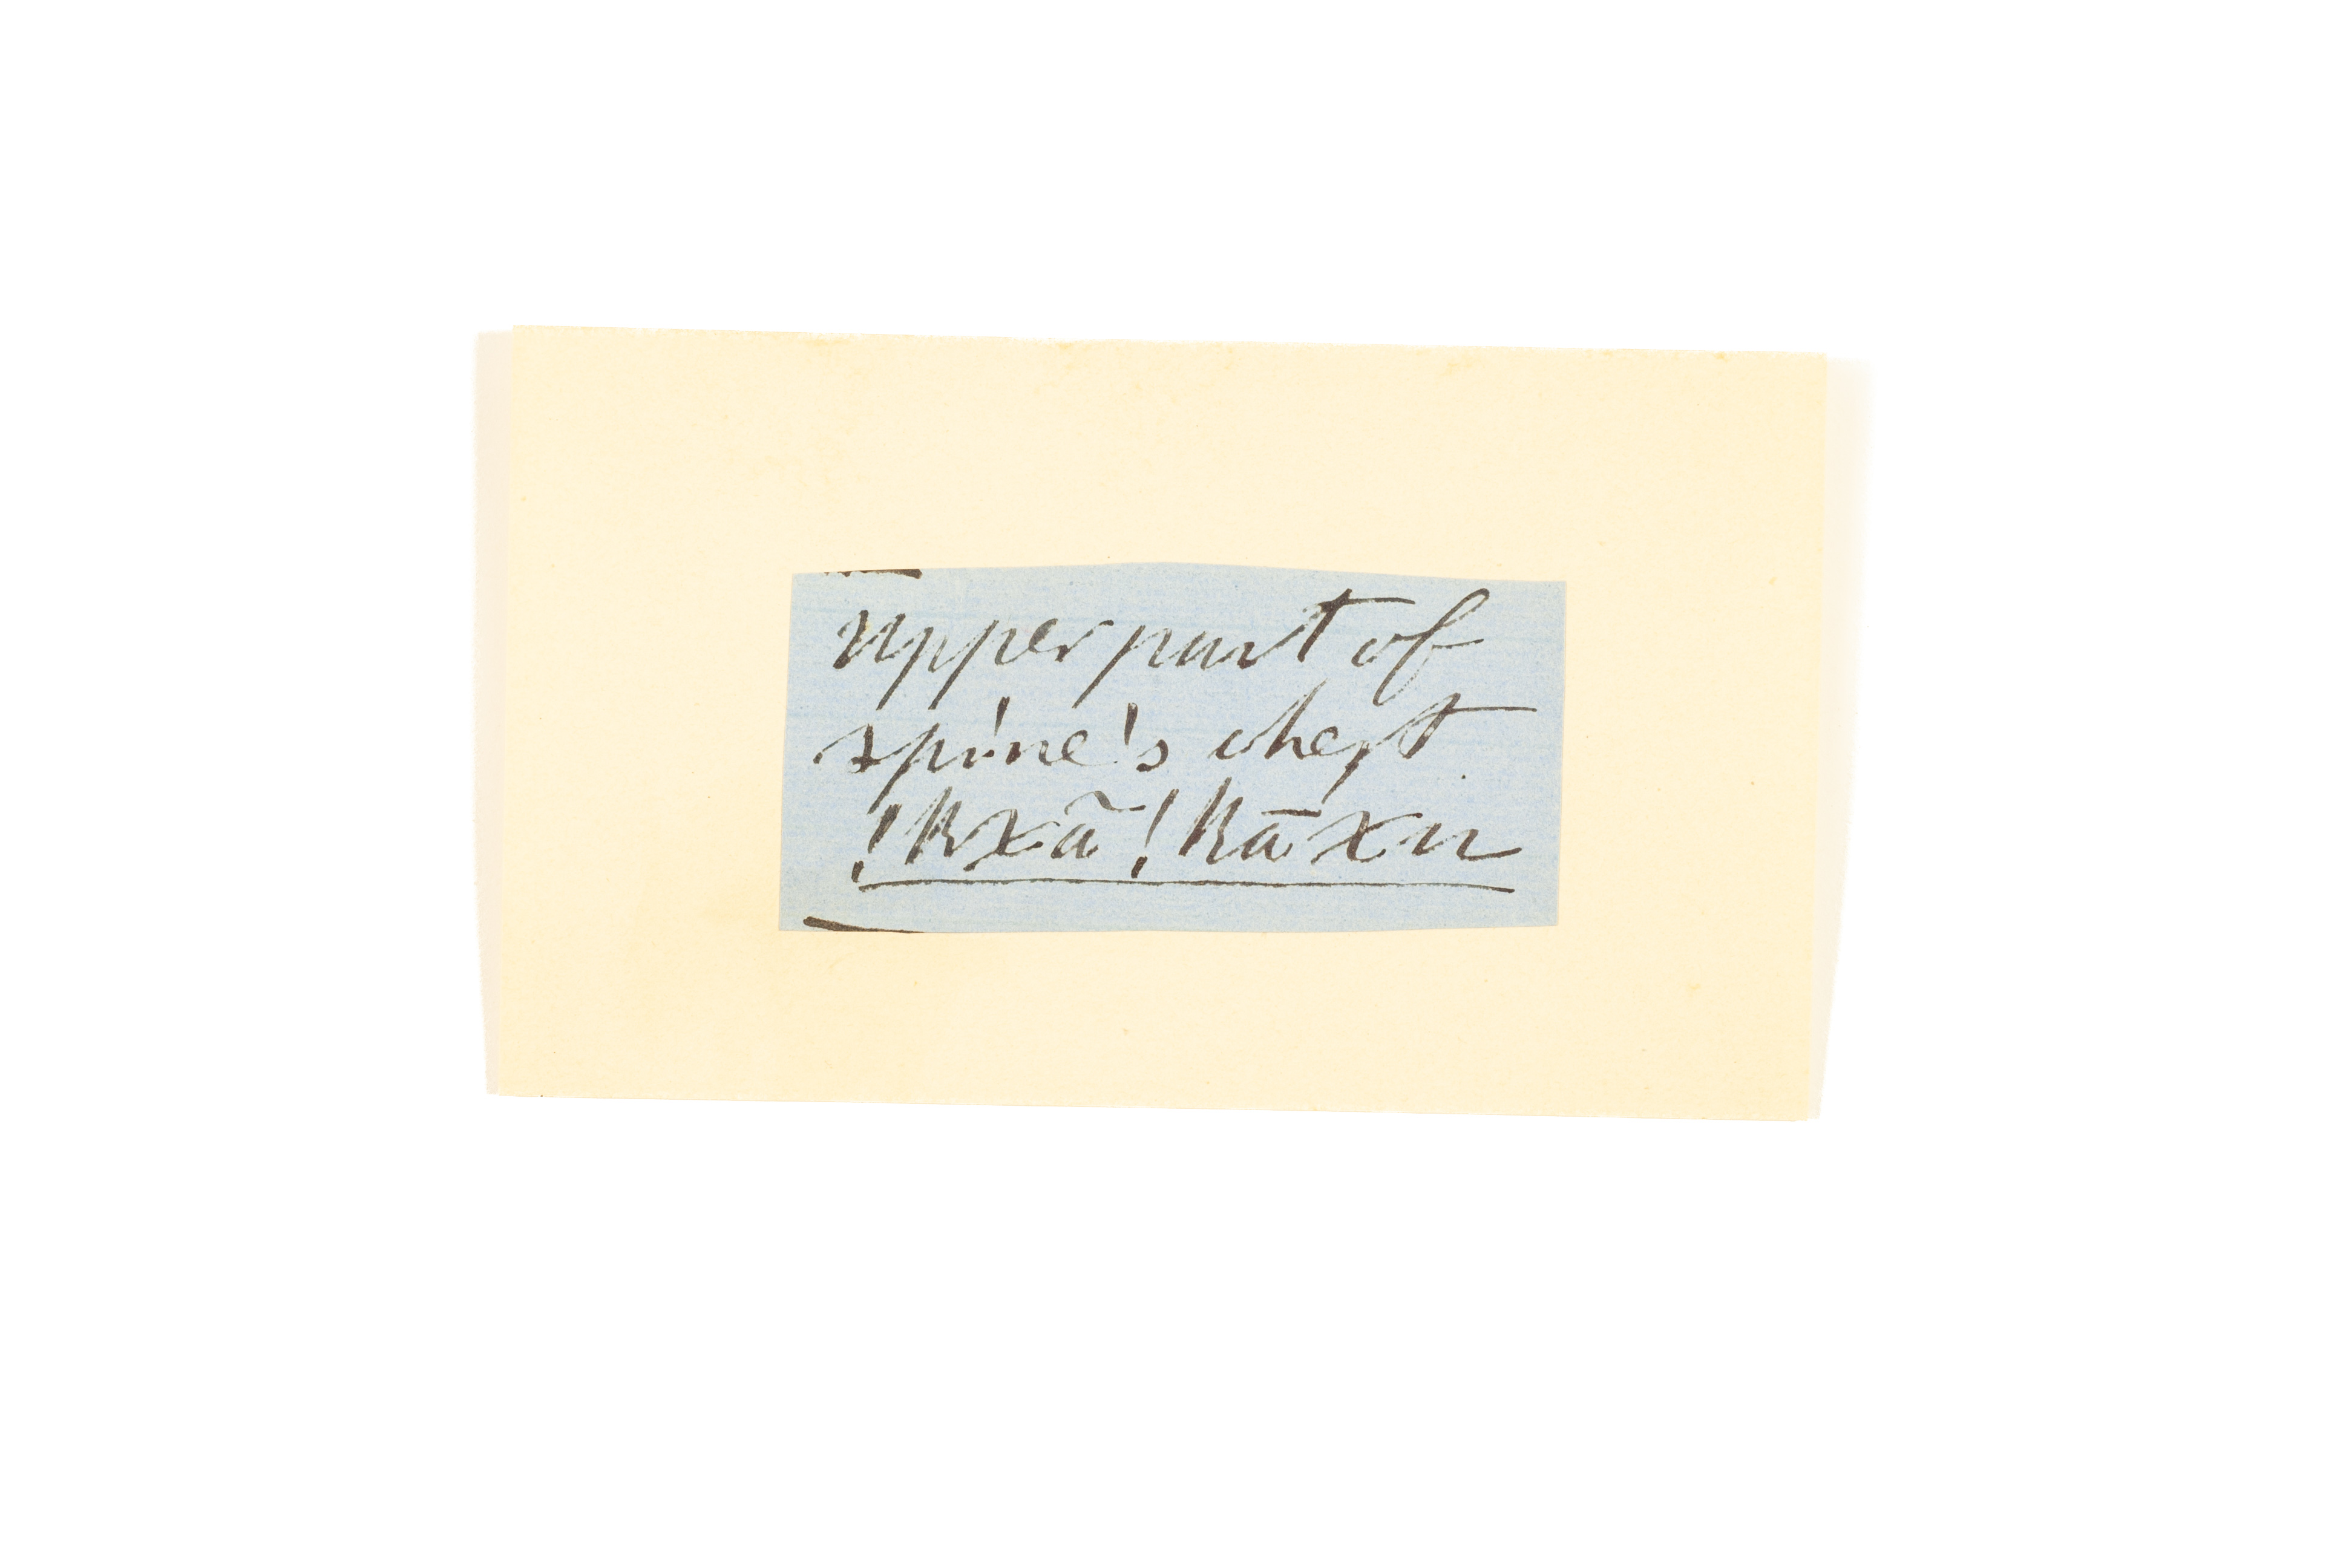 Upper part of
spine's chest
!kxã !kāxu